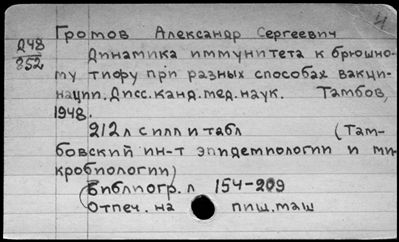 Громов Александр Сергеевич
Д48
852
Динамика иммунитета к брюшно-
му тифу при разных способах вакци-
нации. Дисс. канд. мед. наук. Тамбов,
1948.
212 л с илл и табл (Там-
бовский ин-т эпидемиологии и ми-
кробиологии)
Библиогр. л 154-209
Отпеч. на пиш. маш